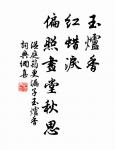 玉爐香
紅蜡淚
偏照畫堂秋思
溫庭筠更漏子玉爐香
詞典網喜